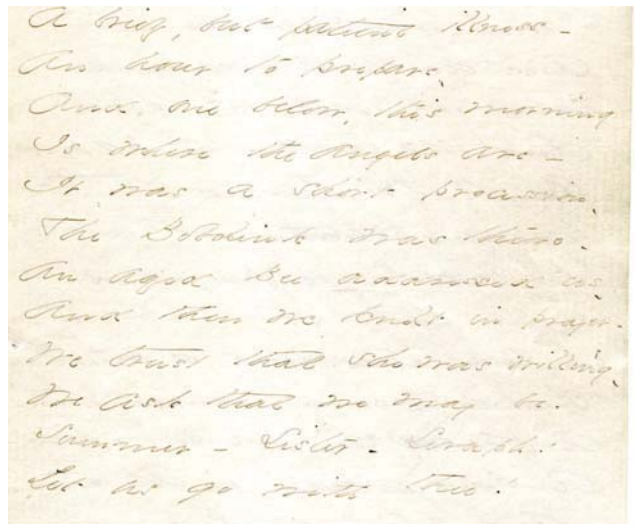 A brief, but patient illness -
An hour to prepare,
And one below, this morning
Is where the angels are -
It was a short procession,
The Bobolink was there -
An aged Bee addressed us,
And then we knelt in prayer -
We trust that she was willing,
We ask that we may be -
Summer - Sister - Seraph!
Let us go with thee!